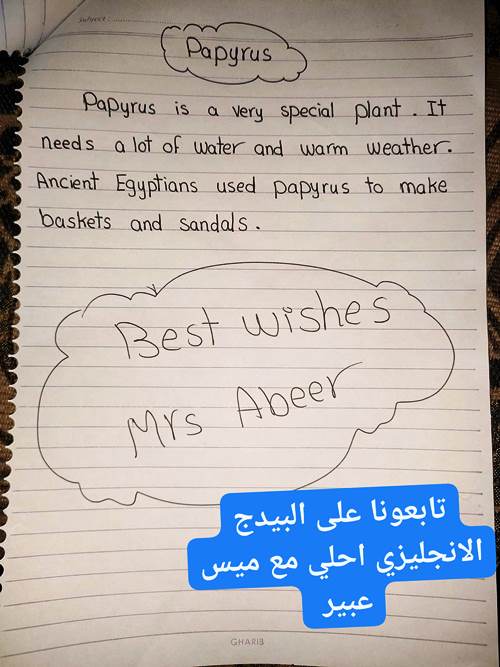 Subject:
Papyrus
Papyrus is a very special plant. It
needs a lot of water and warm weather.
Ancient Egyptians used papyrus to make
baskets and sandals.
Best wishes
Mrs Abeer
تابعونا على البيدج
الانجليزي احلي مع ميس
عبير
GHARIB